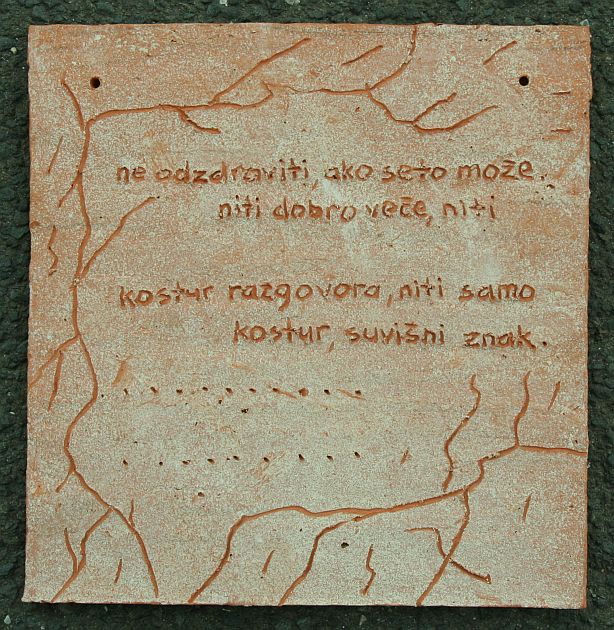 ne odzdraviti, ako se to može.
niti dobro veče, niti
kostur razgovora, niti samo
kostur, suvišni znak.
. . . . . . . . . . . . .
. . . . . . . . . .